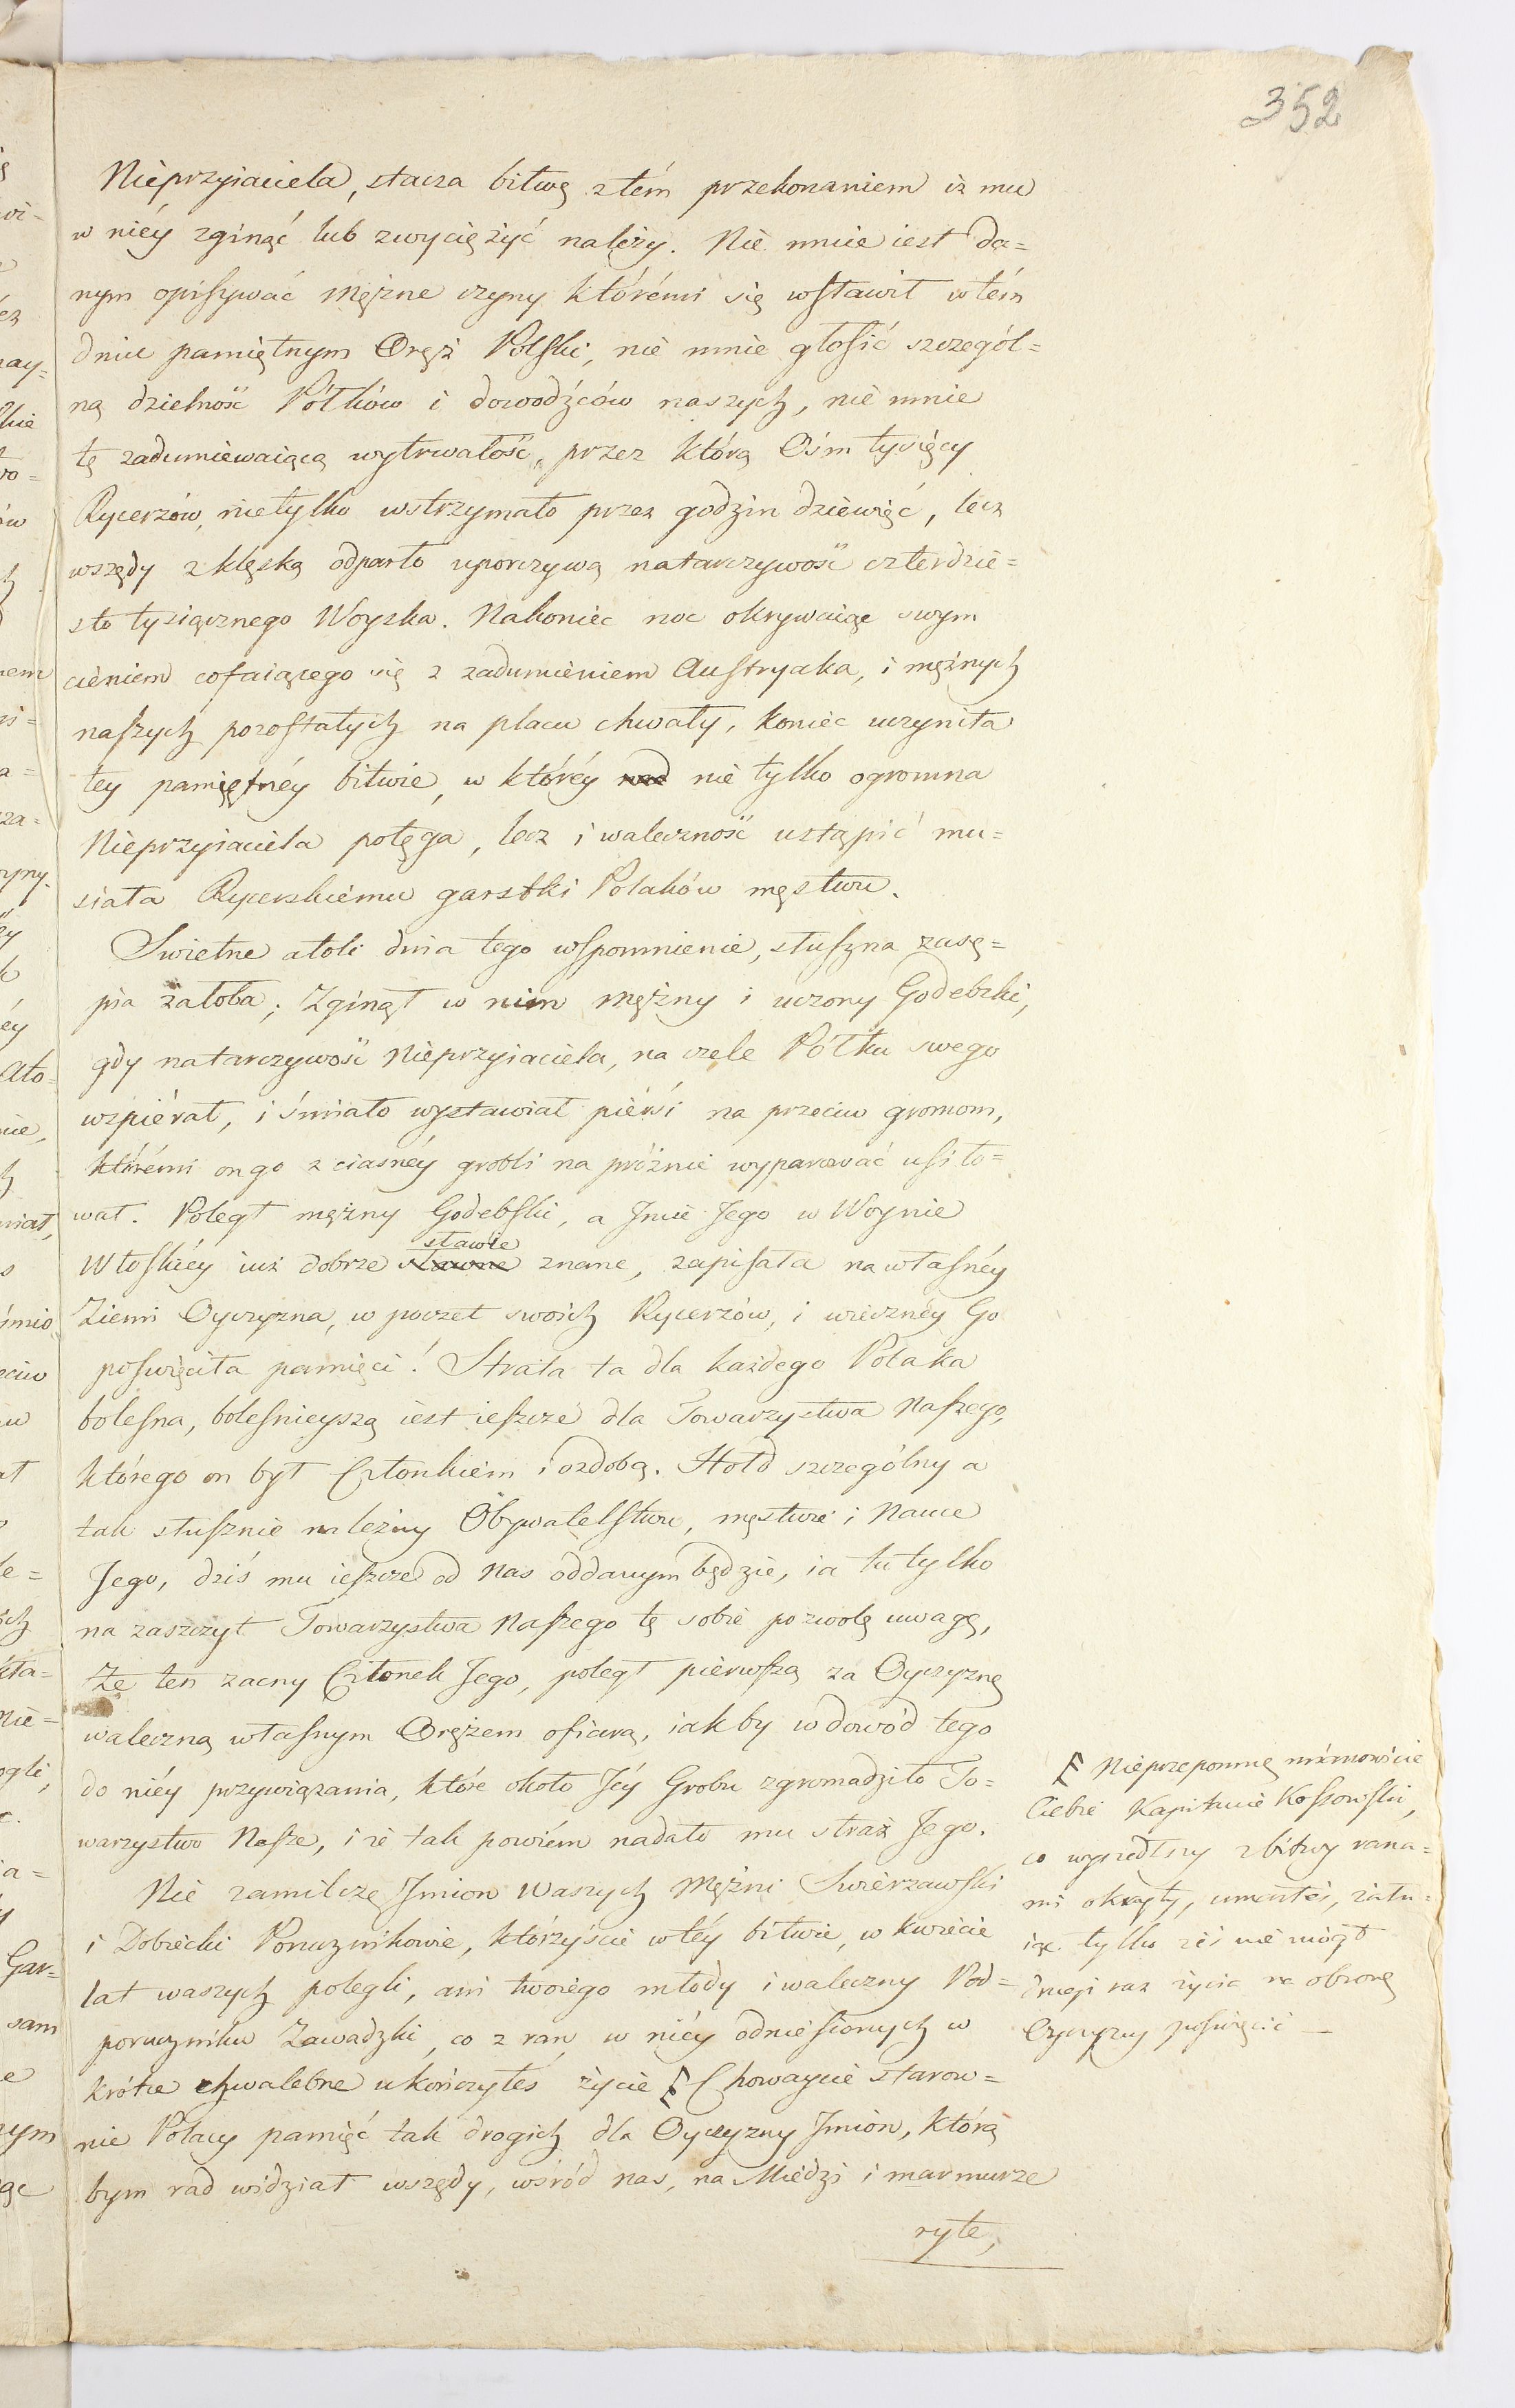 352
Nieprzyiaciela, stacza bitwę z tém przekonaniem iż mu
w niéy zginąć lub zwyciężyć należy. Nie mnie iest da=
nym opisywać mężne czyny którémi się wsławił w tém
dniu pamiętnym Oręż Polski, nie mnie głosić szczegól=
ną dzielność Półków i dowodźców naszych, nie mnie
tę zadumiewaiącą wytrwałość, przez którą Ośm tysięcy
Rycerzów, nietylko wstrzymało przez godzin dziewięć, lecz
wszędy z klęską odparło uporczywą natarczywość czterdzie=
sto tysiącznego Woyska. Nakoniec noc okrywaiąc swym
cieniem cofaiącego się z zadumieniem Austryaka, i mężnych
naszych pozostałych na placu chwały, koniec uczyniła
tey pamiętnéy bitwie, w któréy nie tylko ogromna
Nieprzyiaciela potęga, lecz i waleczność ustąpić mu=
siała Rycerskiemu garstki Polaków męstwu.
Swietne atoli dnia tego wspomnienie, słuszna zasę=
pia żałoba; Zginął w nim mężny i uczony Godebski,
gdy natarczywość Nieprzyiaciela, na czele Półku swego
wspiérał, i śmiało wystawiał piérsi na przeciw gromom,
którémi on go z ciasnéy grobli na próżnie wyparować usiło=
wał. Poległ mężny Godebski, a Jmie Jego w Woynie
Włoskiéy iuż dobrze sławne znane, zapisała na własnéy
sławie
Ziemi Oyczyzna, w poczet swoich Rycerzów, i wiecznéy Go
poświęciła pamięci! Strata ta dla każdego Polaka
bolesna, boleśnieyszą iest ieszcze dla Towarzystwa Naszego,
którego on był Członkiem i ozdobą. Hołd szczególny a
tak słusznie należny Obywatelstwu, męstwu i Nauce
Jego, dziś mu ieszcze od Nas oddanym będzie, ia tu tylko
na zaszczyt Towarzystwa Naszego tę sobie pozwolę uwagę,
Że ten zacny Członek Jego, poległ pierwszą za Oyczyznę
waleczną własnym Orężem ofiarą, iakby w dowód tego
do niéy przywiązania, które około Jéy Grobu zgromadziło To=
warzystwo Nasze, i że tak powiém nadało mu straż Jego.
Nie zamilczę Jmion Waszych Mężni Swierzawski
i Dobiecki Porucznikowie, którzyście w téy bitwie, w kwiecie
lat waszych polegli, ani twoiego młody i waleczny Pod=
poruczniku Zawadzki, co z ran w niéy odniesionych w
krótce chwalebne ukończyłeś życie Ⅎ Chowaycie starow=
nie Polacy pamięć tak drogich dla Oyczyzny Jmion, którą
bym rad widział wszędy, wśród nas, na Miedzi i marmurze
ryte,
Nieprzepomnę mianowicie
Ciebie Kapitanie Kossowski,
co wyszedłszy z bitwy rana=
mi okryty, umarłeś, żału=
iąc tylko żeś nie mógł
drugi raz życia na obronę
Oyczyzny poświęcić —